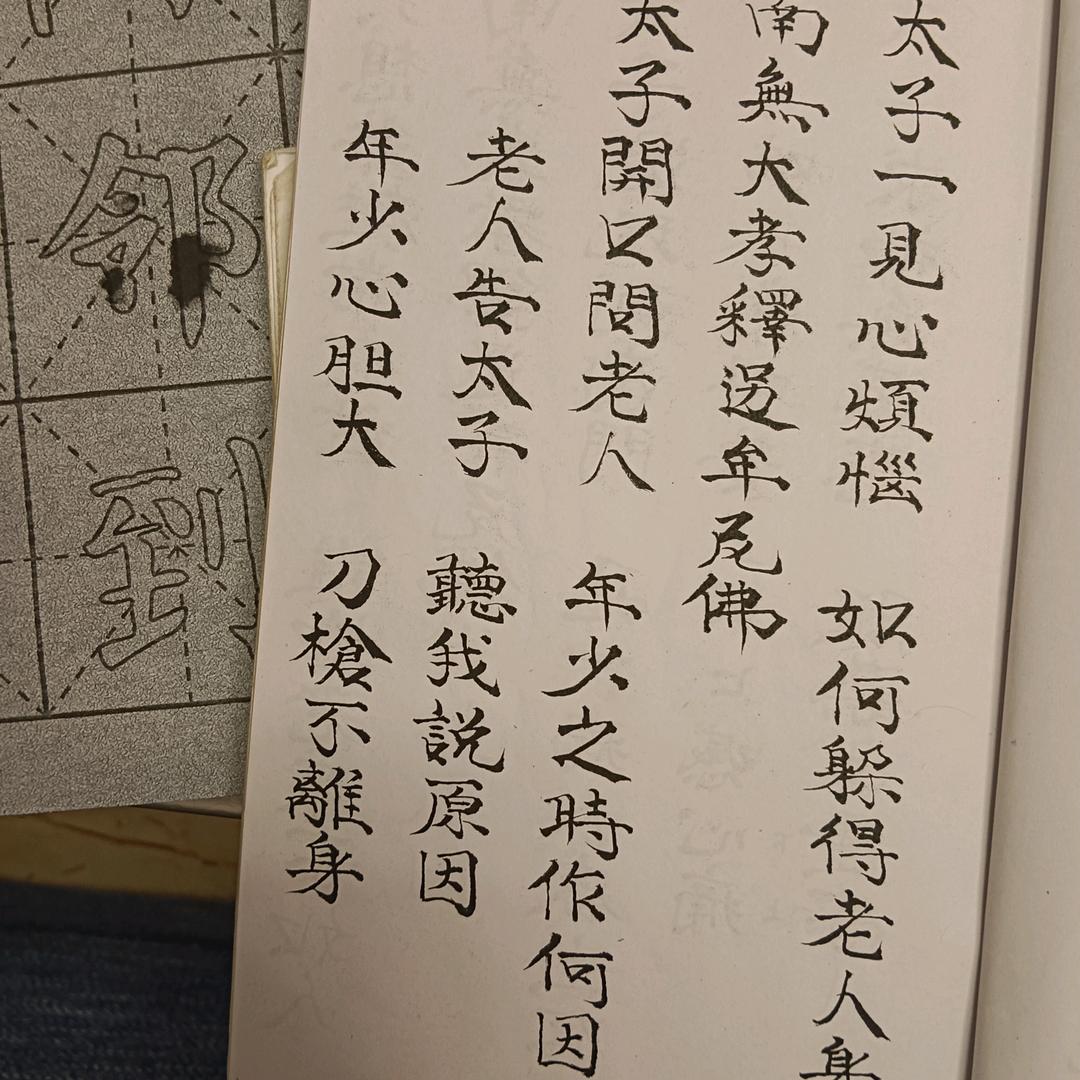 太子一見心煩惱 如何躲得老人身
南無大孝釋迦牟尼佛
太子開口問老人 年少之時作何因
老人告太子 聽我說原因
年少心胆大 刀槍不離身
鄉
到